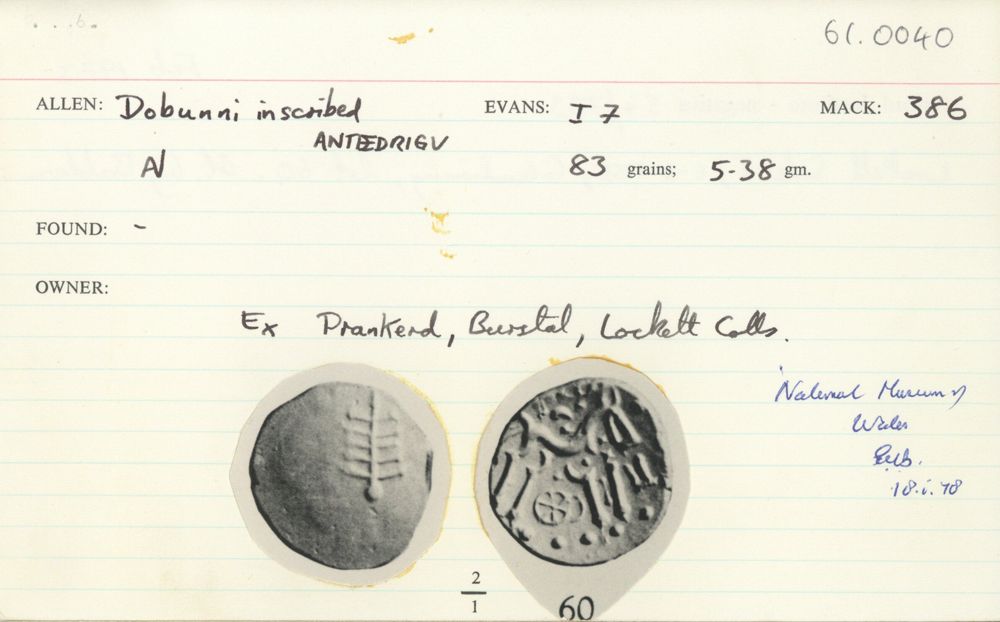 61.0040
ALLEN: Dobunni inscribed EVANS: I 7 MACK: 386
ANTEDRIGV
N 83 grains; 5.38 gm.
FOUND: -
OWNER:
Ex Prankerd, Burstal, Lockett Colls.
National Museum of
Wales
18.i.78
2
1
60